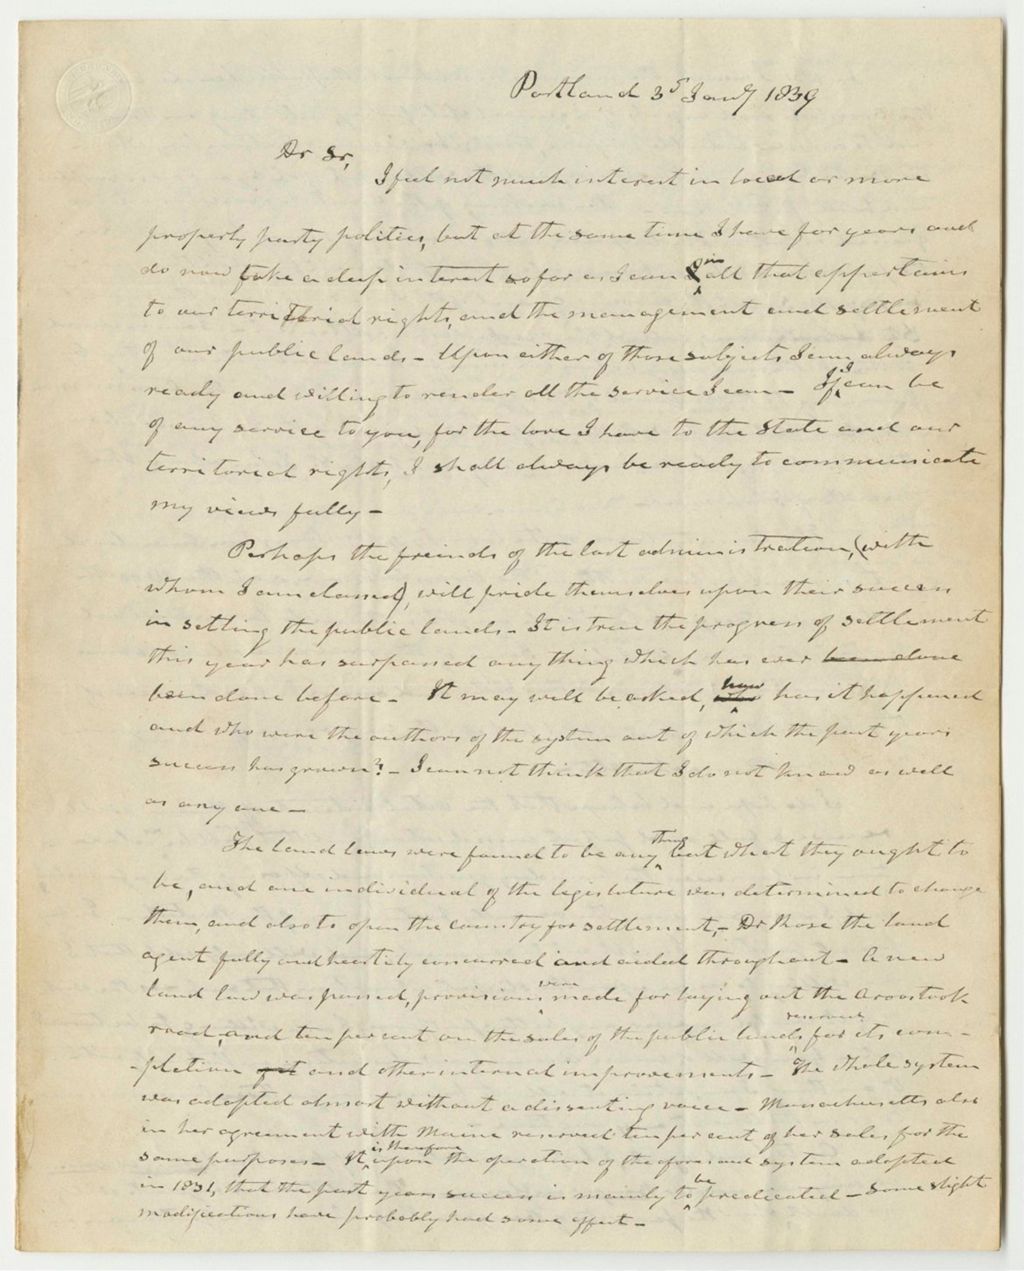 Portland 3d Jany 1839
Dr Sr,
I feel not much interest in local or more
properly party politics, but at the same time I have for years and
do now take a deep interest so far as I can in all that appertains
to our territorial rights, and the management and settlement
of our public lands - Upon either of those subjects I am always
ready and willing to render all the service I can - If I can be
of any service to you, for the love I have to the State and our
territorial rights, I shall always be ready to communicate
my views fully -
Perhaps the freinds of the last administration, (with
whom I am classed), will pride themselves upon their success
in setling the public lands - It is true the progress of settlement
this year has surpassed any thing which has ever been done
been done before - It may well be asked, how has it happened
and who were the authors of the system out of which the past years
success has grown? - I can not think that I do not know as well
as any one -
The land laws were found to be any thing but what they ought to
be, and one individual of the legislature was determined to change
them, and also to open the country for settlement, - Dr Rose the land
agent fully and heartily concurred and aided throughout - A new
land law was passed, provisions were made for laying out the Aroostook
road, and ten per cent on the sales of the public lands reserved for its com-
-pletion and other internal improvements - The whole system
was adopted almost without a dissenting voice - Massachusetts also
in her agreement with Maine reserved ten per cent of her sales for the
same purposes - It is therefore upon the operation of the aforesaid system adopted
in 1831, that the past years success is mainly to be predicated - Some slight
modifications have probably had some effect -